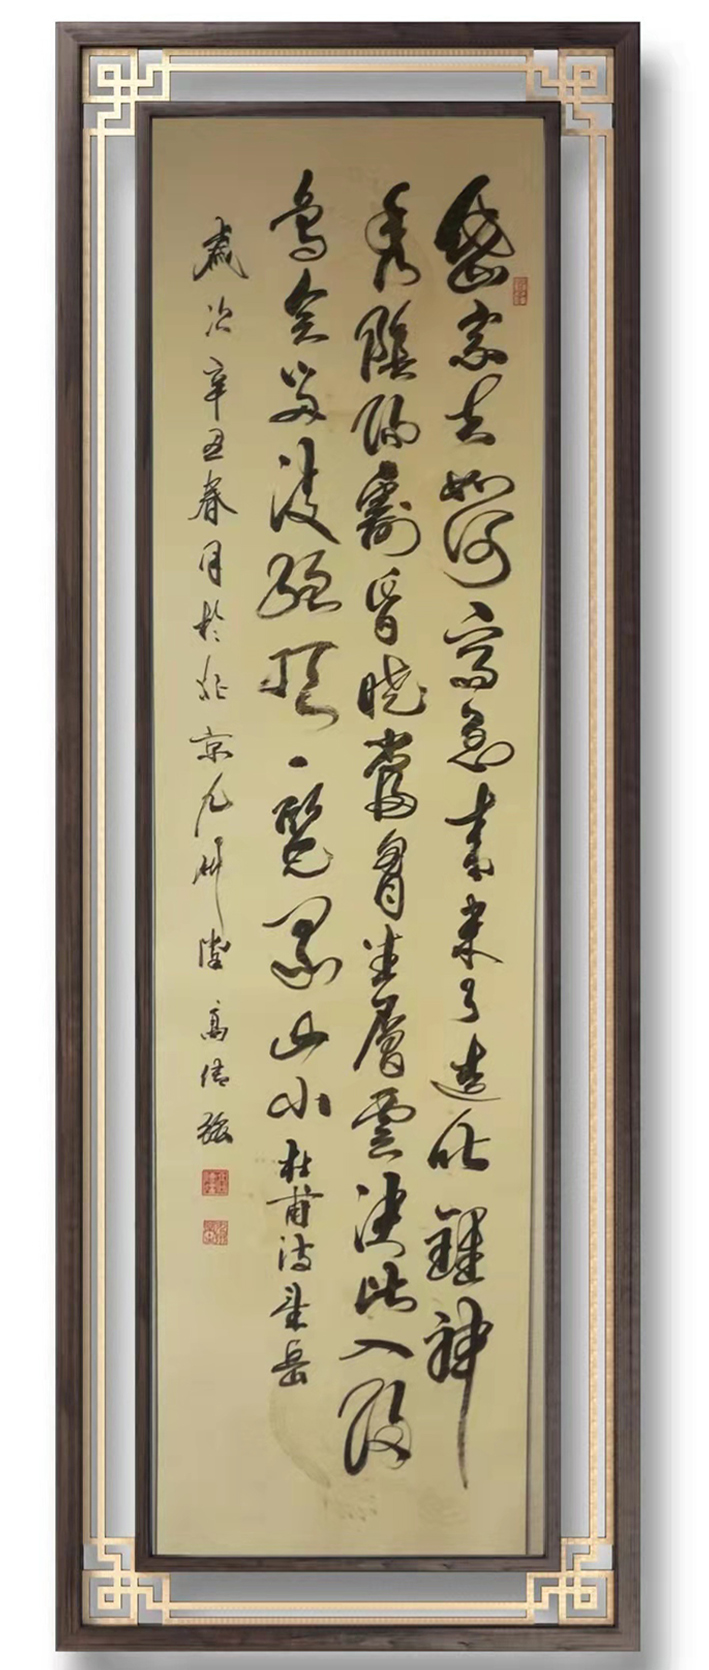 岱宗夫如何齊魯青未了造化鍾神
秀陰陽割昏曉蕩胸生層雲決眥入歸
鳥會當凌絕頂一覽眾山小杜甫詩望岳
歲次辛丑春月於北京九州堂高